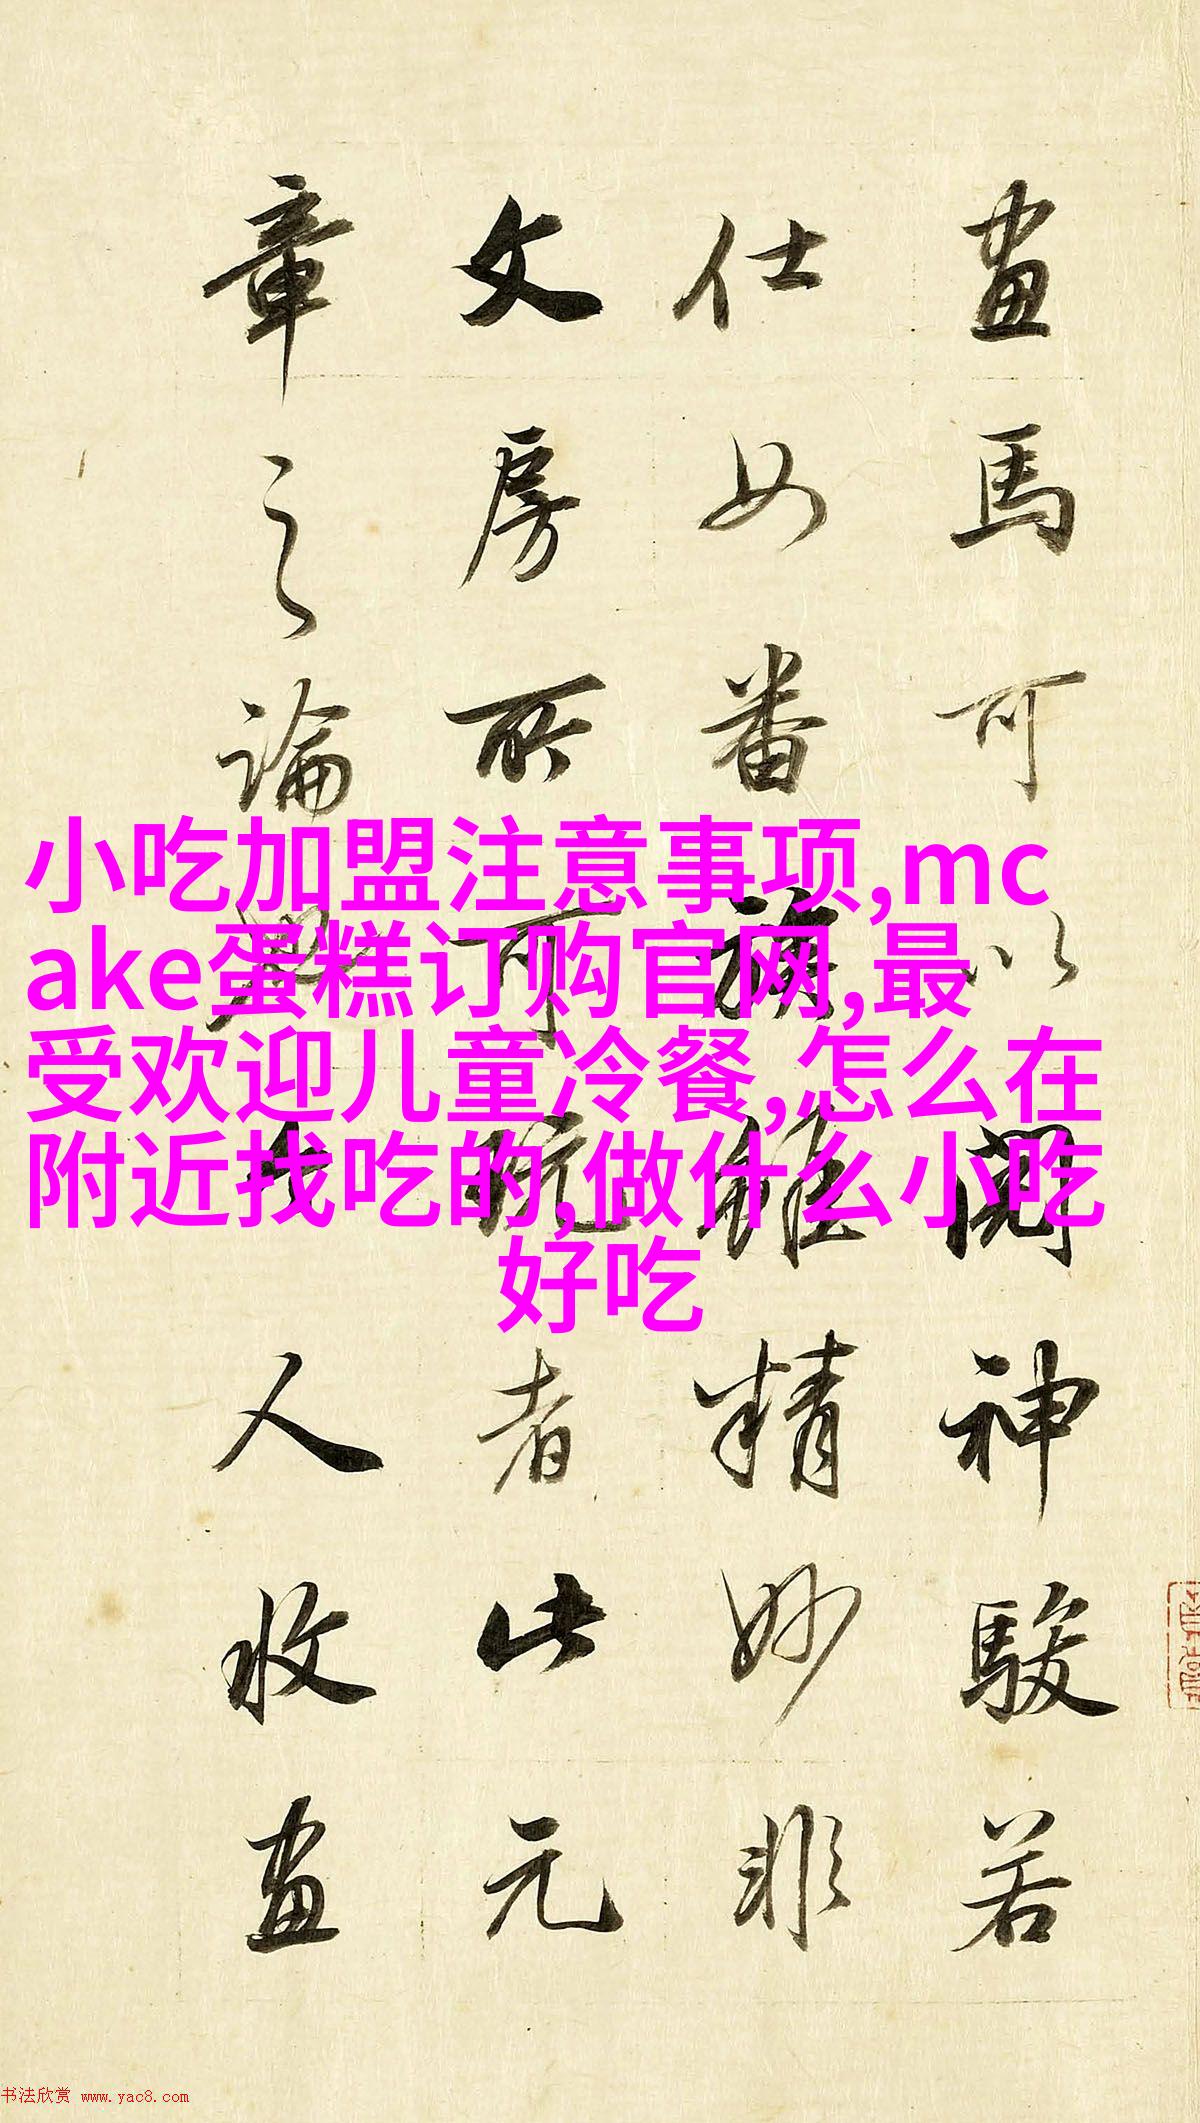 畫馬可以閱神駿若
仕女番族雖精妙非
文房所可玩者此元
章之論與人收畫
小吃加盟注意事项,mc
ake蛋糕订购官网,最
受欢迎儿童冷餐,怎么在
附近找吃的,做什么小吃
好吃
书法欣赏 www.yac8.com